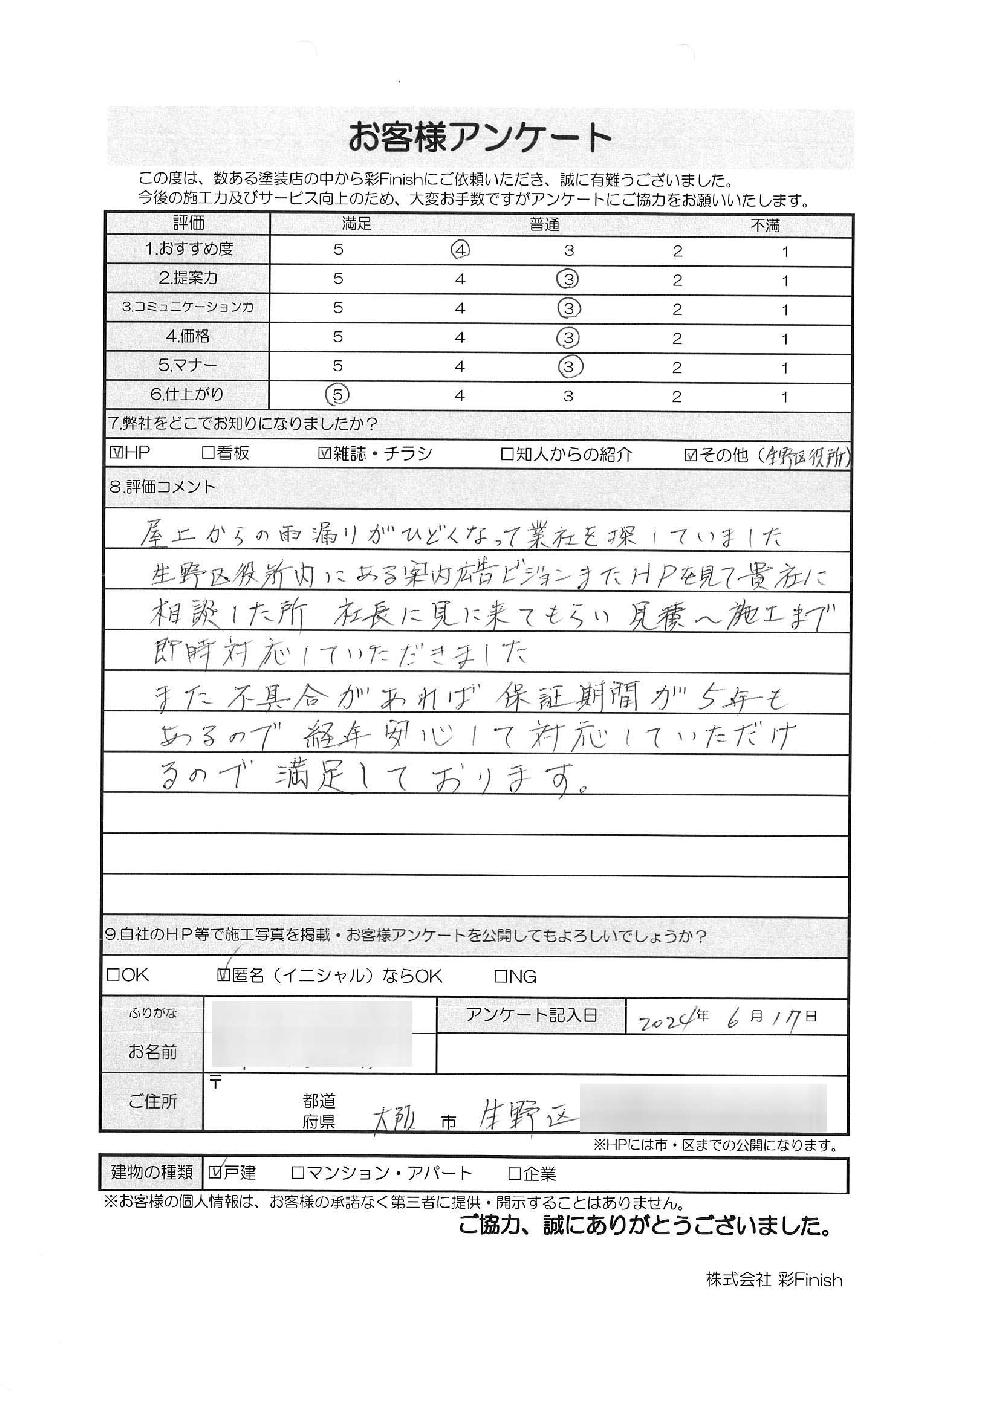 お客様アンケート
この度は、数ある塗装店の中から彩Finishにご依頼いただき、誠に有難うございました。
今後の施工力及びサービス向上のため、大変お手数ですがアンケートにご協力をお願いいたします。
評価 満足 普通 不満
1.おすすめ度 5 4 3 2 1
2.提案力 5 4 3 2 1
3.コミュニケーション力 5 4 3 2 1
4.価格 5 4 3 2 1
5.マナー 5 4 3 2 1
6.仕上がり 5 4 3 2 1
7.弊社をどこでお知りになりましたか？
☑HP □看板 ☑雑誌・チラシ □知人からの紹介 ☑その他（生野区役所）
8.評価コメント
屋上からの雨漏りがひどくなって業社を探していました
生野区役所内にある案内広告ビジョンまたHPを見て貴社に
相談した所 社長に見に来てもらい 見積～施工まで
即時対応していただきました
また不具合があれば 保証期間が5年も
あるので 経年安心して対応していただけ
るので 満足しております。
9.自社のＨＰ等で施工写真を掲載・お客様アンケートを公開してもよろしいでしょうか？
□OK ☑匿名（イニシャル）ならOK □NG
ふりがな アンケート記入日 2024年 6月 17日
お名前
ご住所 〒 都道府県 大阪 市 生野区
※HPには市・区までの公開になります。
建物の種類 ☑戸建 □マンション・アパート □企業
※お客様の個人情報は、お客様の承諾なく第三者に提供・開示することはありません。
ご協力、誠にありがとうございました。
株式会社 彩Finish